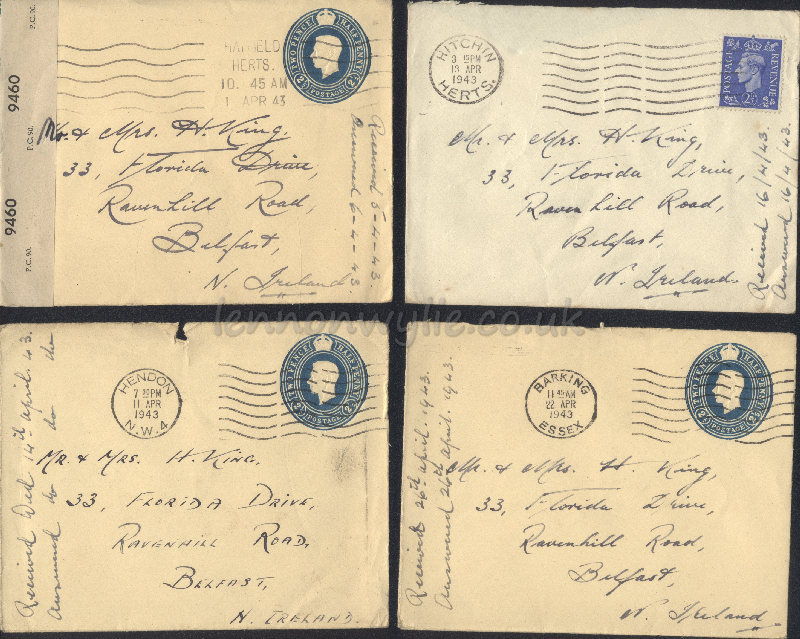 P.C. 90.
9460
P.C. 90.
9460
P.C. 90.
HATFIELD
HERTS.
10. 45 AM
1 APR 43
TWO PENCE HALF PENNY
2½ POSTAGE 2½
Mr. & Mrs. H. King,
33, Florida Drive,
Ravenhill Road,
Belfast,
N. Ireland.
Received 5-4-43
Answered 6-4-43.
HITCHIN
13 APR
1943
HERTS.
POSTAGE REVENUE
2½D
Mr. & Mrs. H. King,
33, Florida Drive,
Ravenhill Road,
Belfast,
N. Ireland.
Received 16/4/43.
Answered 16/4/43.
lennonwylie.co.uk
HENDON
11 APR
1943
N.W.4
TWO PENCE HALF PENNY
2½ POSTAGE 2½
MR. & MRS. H. KING,
33, FLORIDA DRIVE,
RAVENHILL ROAD,
BELFAST,
N. IRELAND.
Received Wed 14th april. 43.
Answered do do do
BARKING
22 APR
1943
ESSEX
TWO PENCE HALF PENNY
2½ POSTAGE 2½
Mr. & Mrs. H. King,
33, Florida Drive,
Ravenhill Road,
Belfast,
N. Ireland
Received 26th april. 1943.
Answered 26th april. 1943.